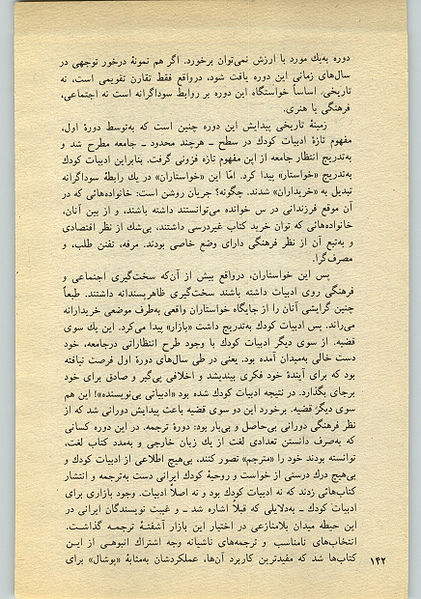 دوره به‌یك مورد با ارزش نمی‌توان برخورد. اگر هم نمونهٔ درخور توجهی در
سال‌های زمانی این دوره یافت شود، درواقع فقط تقارن تقویمی است، نه
تاریخی. اساساً خواستگاه این دوره بر روابط سوداگرانه است نه اجتماعی،
فرهنگی یا هنری.
زمینهٔ تاریخی پیدایش این دوره چنین است که به‌توسط دورهٔ اول،
مفهوم تازهٔ ادبیات کودك در سطح ـ هرچند محدود ـ جامعه مطرح شد و
به‌تدریج انتظار جامعه از این مفهوم تازه فزونی گرفت. بنابراین ادبیات کودك
به‌تدریج «خواستار» پیدا کرد. امّا این «خواستاران» در یك رابطهٔ سوداگرانه
تبدیل به «خریداران» شدند. چگونه؟ جریان روشن است: خانواده‌هائی که در
آن موقع فرزندانی در س خوانده می‌توانستند داشته باشند، و از بین آنان،
خانواده‌هائی که توان خرید کتاب غیردرسی داشتند، بی‌شك از نظر اقتصادی
و به‌تبع آن از نظر فرهنگی دارای وضع خاصی بودند. مرفه، تفنن طلب، و
مصرف‌گرا.
پس این خواستاران، درواقع بیش از آن‌که سخت‌گیری اجتماعی و
فرهنگی روی ادبیات داشته باشند سخت‌گیری ظاهرپسندانه داشتند. طبعاً
چنین گرایشی آنان را از جایگاه خواستاران واقعی به‌طرف موضعی خریدارانه
می‌راند. پس ادبیات کودك به‌تدریج داشت «بازار» پیدا می‌کرد. این یك سوی
قضیه. از سوی دیگر ادبیات کودك با وجود طرح انتظاراتی درجامعه، خود
دست خالی به‌میدان آمده بود. یعنی در طی سال‌های دورهٔ اول فرصت نیافته
بود که برای آیندهٔ خود فکری بیندیشد و اخلافی پی‌گیر و صادق برای خود
برجای بگذارد. در نتیجه ادبیات کودك بود شده بود «ادبیاتی بی‌نویسنده»! این هم
سوی دیگر قضیه. برخورد این دو سوی قضیه باعث پیدایش دورانی شد که از
نظر فرهنگی دورانی بی‌حاصل و بی‌بار بود: دورهٔ ترجمه. در این دوره کسانی
که به‌صرف دانستن تعدادی لغت از یك زبان خارجی و به‌مدد کتاب لغت،
توانسته بودند خود را «مترجم» تصور کنند، بی‌هیچ اطلاعی از ادبیات کودك و
بی‌هیچ درك درستی از خواست و روحیهٔ کودك ایرانی دست به‌ترجمه و انتشار
کتاب‌هائی زدند که نه ادبیات کودك بود و نه اصلاً ادبیات. وجود بازاری برای
ادبیات کودك ـ به‌دلایلی که قبلاً اشاره شد ـ و غیبت نویسندگان ایرانی در
این حیطه میدان بلامنازعی در اختیار این بازار آشفتهٔ ترجمه گذاشت.
انتخاب‌های نامناسب و ترجمه‌های ناشیانه وجه اشتراك انبوهی از این
کتاب‌ها شد که مفیدترین کاربرد آن‌ها، عملکردشان به‌مثابهٔ «پوشال» برای
۱۴۲